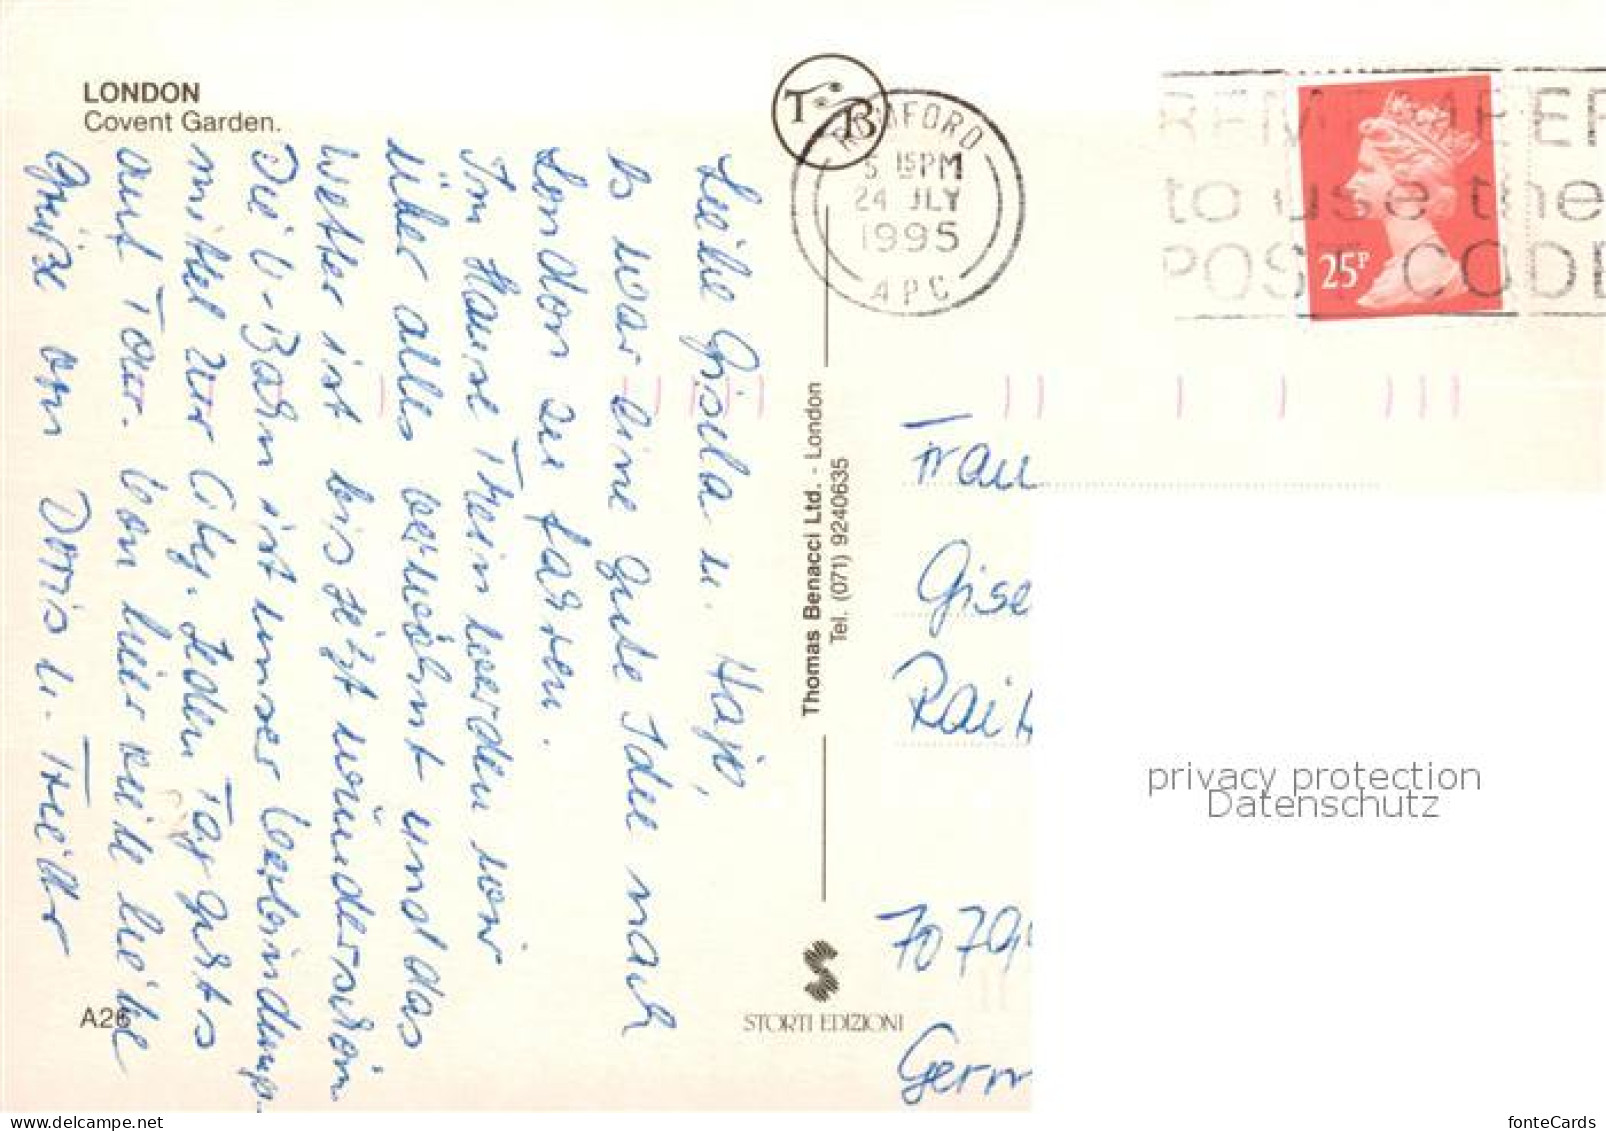 LONDON
Covent Garden.
Liebe Gisela u. Hajo,
Es war eine gute Idee nach
London zu fahren.
Im Hause Thein werden wir
über alles verwöhnt und das
Wetter ist bis jetzt wunderschön
Die U-Bahn ist unser Verbindungs-
mittel zur City. Jeden Tag gehts
auf Tour. Von hier viele liebe
Grüße von Doris u.
A26
Thomas Benacci Ltd. - London
Tel. (071) 9240635
STORTI EDIZIONI
TB
ROMFORD
5 15PM
24 JLY
1995
APC
REMEMBER
to use the
POST CODE
25P
Frau
Gise
Rait
7079
Germ
privacy protection
Datenschutz
fonteCards